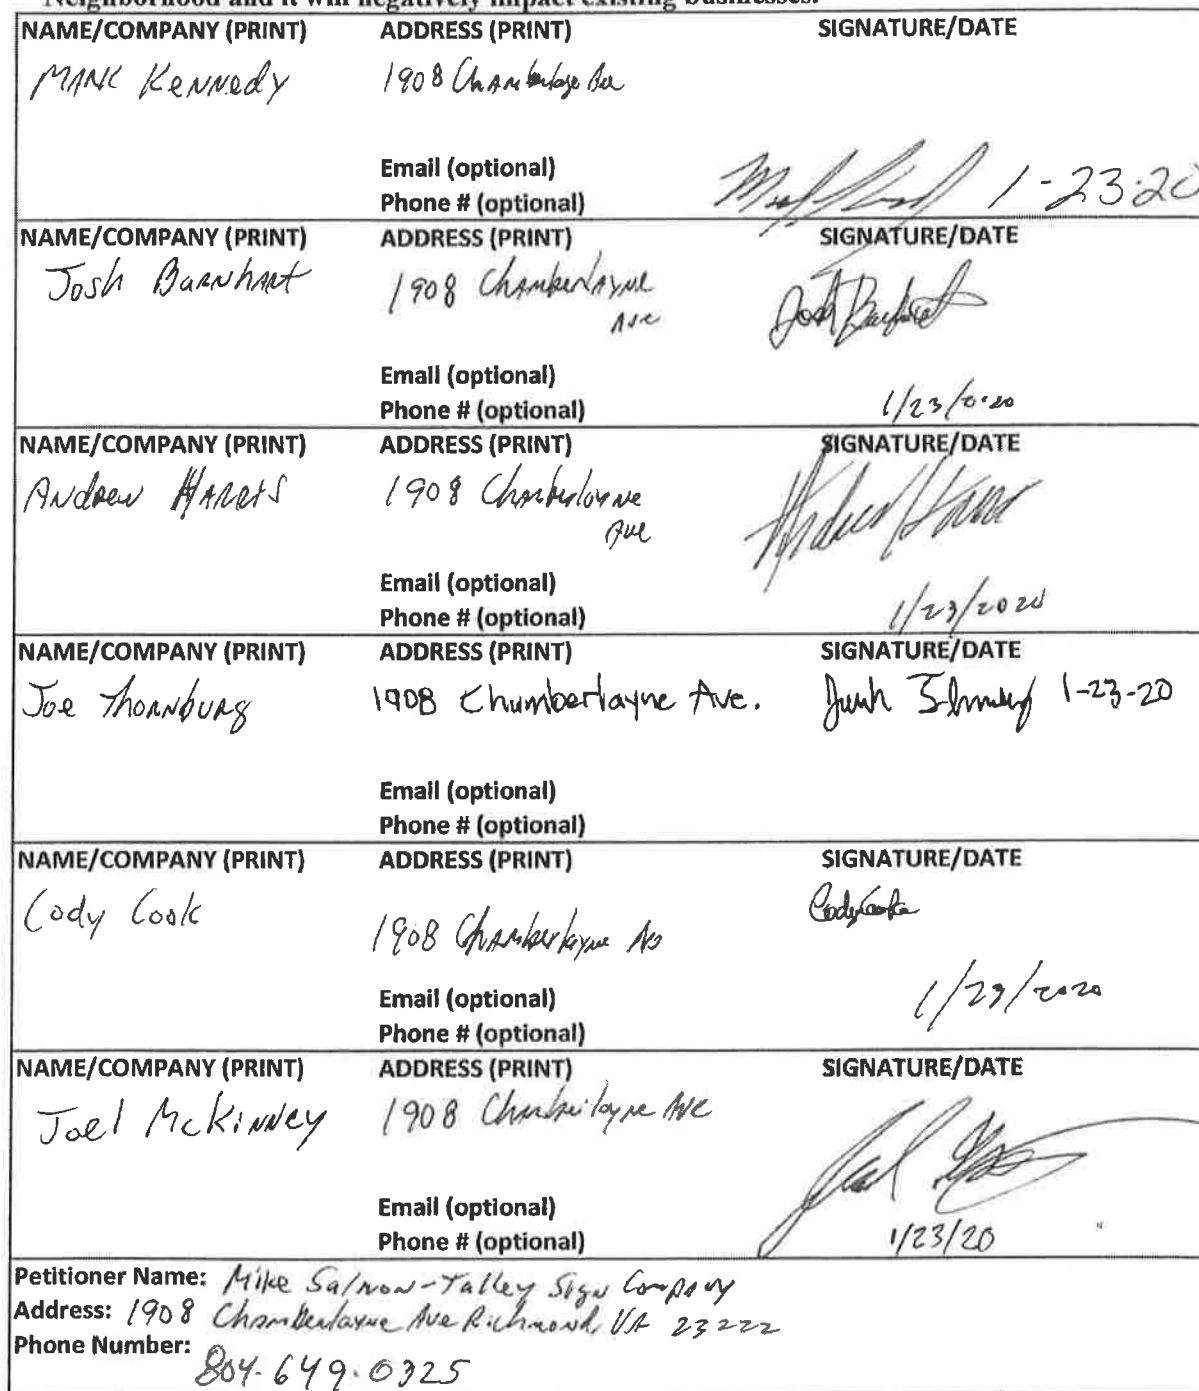 Neighborhood and it will negatively impact existing businesses.
NAME/COMPANY (PRINT) ADDRESS (PRINT) SIGNATURE/DATE
MARK Kennedy 1908 Ave
Email (optional)
Phone # (optional) 1-23-20
NAME/COMPANY (PRINT) ADDRESS (PRINT) SIGNATURE/DATE
Josh Barnhart 1908 Chamberlayne
Ave
Josh Barnhart
Email (optional)
Phone # (optional) 1/23/2020
NAME/COMPANY (PRINT) ADDRESS (PRINT) SIGNATURE/DATE
Andrew Harris 1908 Chamberlayne
Ave
Andrew Harris
Email (optional)
Phone # (optional) 1/23/2020
NAME/COMPANY (PRINT) ADDRESS (PRINT) SIGNATURE/DATE
Joe Thornburg 1908 Chumberlayne Ave. 1-23-20
Email (optional)
Phone # (optional)
NAME/COMPANY (PRINT) ADDRESS (PRINT) SIGNATURE/DATE
Cody Cook 1908 Chamberlayne
1/23/2020
Email (optional)
Phone # (optional)
NAME/COMPANY (PRINT) ADDRESS (PRINT) SIGNATURE/DATE
Joel McKinney 1908 Chamberlayne Ave
Email (optional)
Phone # (optional) 1/23/20
Petitioner Name: Mike Salmon-Talley Sign Company
Address: 1908 Chamberlayne Ave Richmond, VA 23222
Phone Number:
804-649-0325